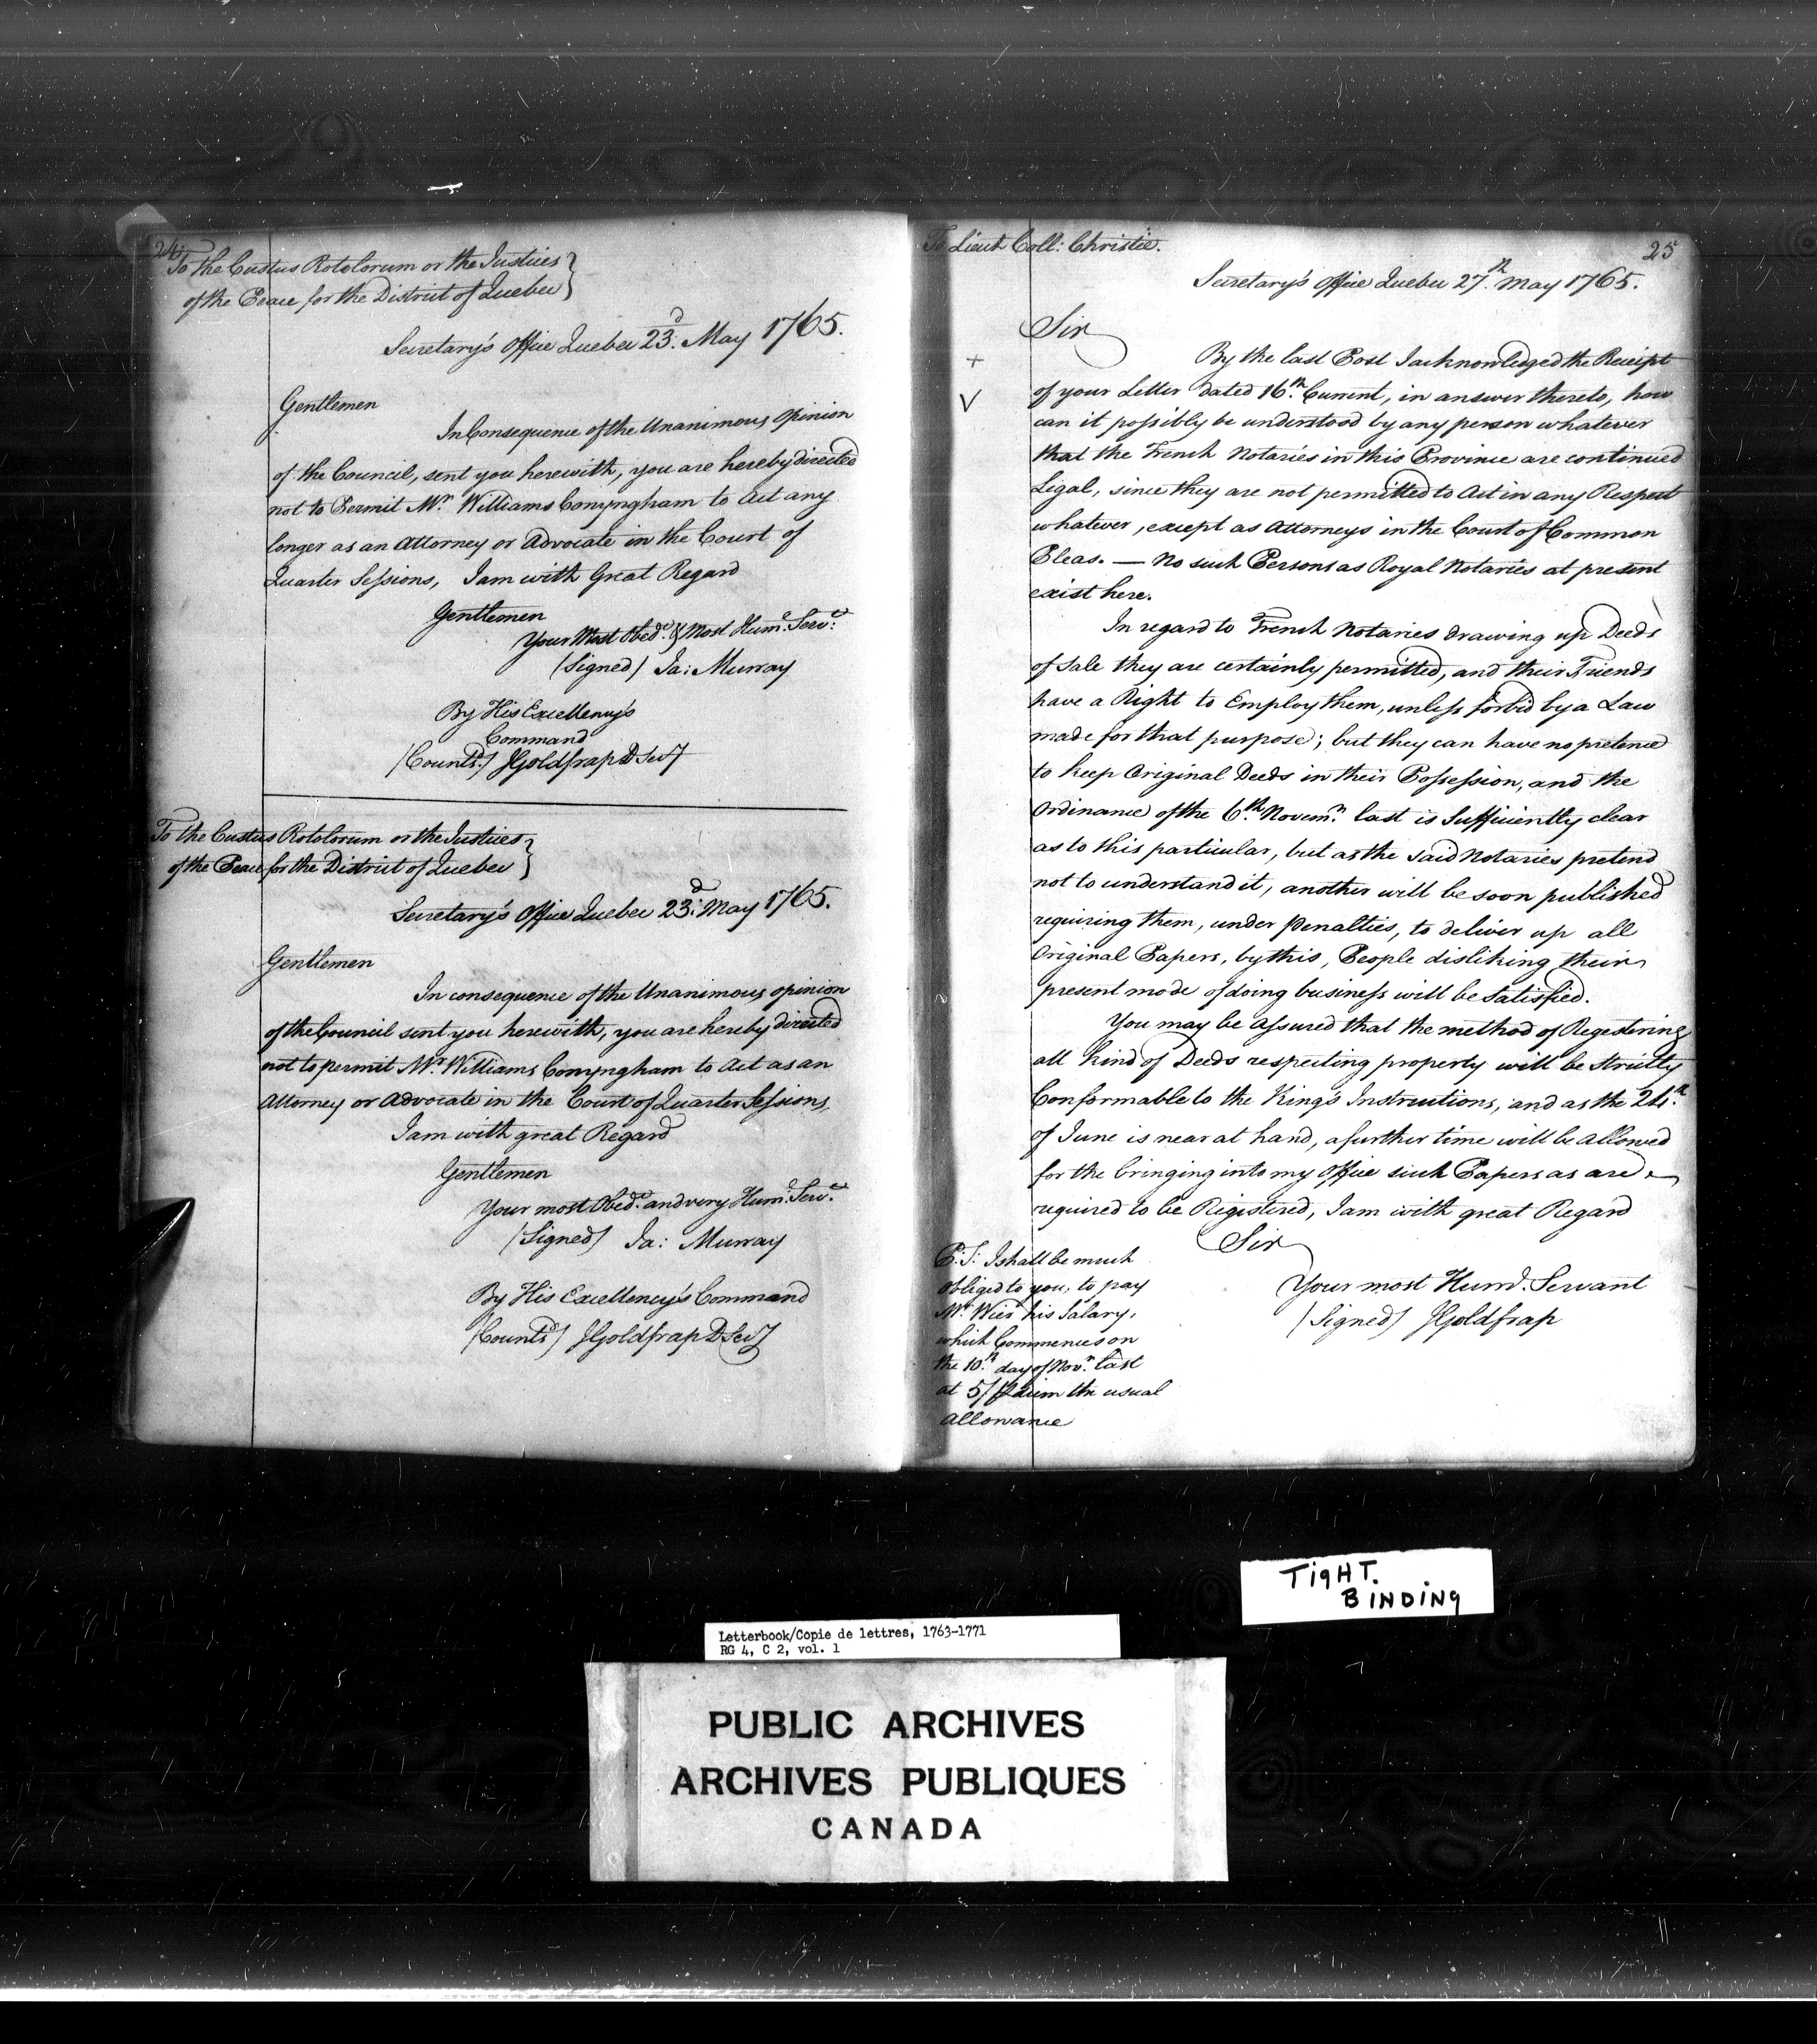 24
To the Custus Rotolorum or the Justices
of the Peace for the District of Quebec
Secretary's Office Quebec 23.d May 1765.
Gentlemen
In Consequence of the Unanimous Opinion
of the Council, sent you herewith, you are hereby directed
not to Permit Mr. Williams Conyngham to Act any
longer as an Attorney or Advocate in the Court of
Quarter Sessions, I am with Great Regard
Gentlemen
Your Most Obed.t & Most Hum.e Serv.t
(Signed) Ja: Murray
By His Excellency's
Command
(Counts.d) JGoldfrap D Secy
To the Custus Rotolorum or the Justices
of the Peace for the District of Quebec
Secretary's Office Quebec 23.d May 1765.
Gentlemen
In consequence of the Unanimous opinion
of the Council sent you herewith, you are hereby directed
not to permit Mr. Williams Conyngham to Act as an
Attorney or Advocate in the Court of Quarter Sessions,
I am with great Regard
Gentlemen
Your most Obed.t and very Hum.e Serv.t
(Signed) Ja: Murray
By His Excellency's Command
(Counts.d) JGoldfrap D Secy
25
To Lieut Coll: Christie.
Secretary's Office Quebec 27.th May 1765.
Sir
By the last Post I acknowledged the Receipt
of your Letter dated 16.th Current, in answer thereto, how
can it possibly be understood by any person whatever
that the French Notaries in this Province are continued
Legal, since they are not permitted to Act in any Respect
whatever, except as Attorneys in the Court of Common
Pleas. — No such Persons as Royal Notaries at present
exist here.
In regard to French Notaries drawing up Deeds
of Sale they are certainly permitted, and their Friends
have a Right to Employ them, unless forbid by a Law
made for that purpose; but they can have no pretence
to keep Original Deeds in their Possession, and the
Ordinance of the 6.th Novem.r last is Sufficiently clear
as to this particular, but as the said Notaries pretend
not to understand it, another will be soon published
requiring them, under Penalties, to deliver up all
Original Papers, by this, People disliking their
present mode of doing business will be Satisfied.
You may be Assured that the method of Regestering
all kind of Deeds respecting property will be strictly
Conformable to the King's Instructions, and as the 24.th
of June is near at hand, a further time will be allowed
for the bringing into my Office such Papers as are
required to be Registered, I am with great Regard
Sir
Your most Hum.l Servant
(Signed) JGoldfrap
P:S: I shall be much
obliged to you, to pay
Mr. Wier his Salary,
which Commences on
the 10.th day of Nov.r last
at 5/ Diem the usual
allowance
TIGHT.
BINDING
Letterbook/Copie de lettres, 1763-1771
RG 4, C 2, vol. 1
PUBLIC ARCHIVES
ARCHIVES PUBLIQUES
CANADA